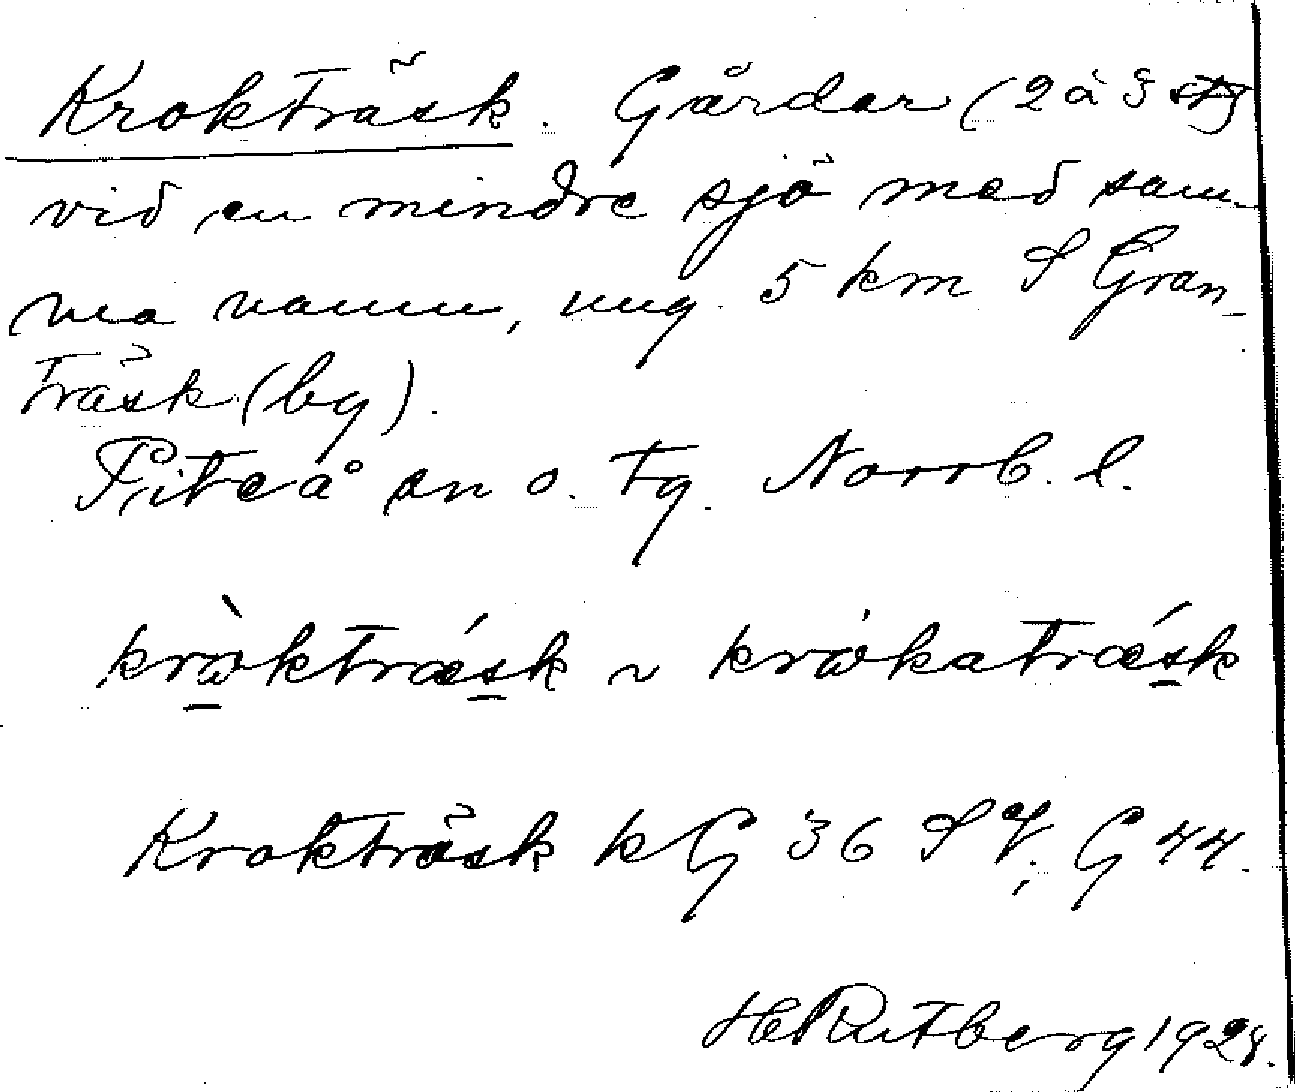 Krokträsk. Gårdar (2 à 3 st)
vid en mindre sjö med sam-
ma namn, ung. 5 km S Gran-
träsk (by).
Piteå sn o. tg. Norrb. l.
kròktræ´sk ~ krókatræ´sk
Krokträsk kG 36 SV; G 44.
H Rutberg 1928.